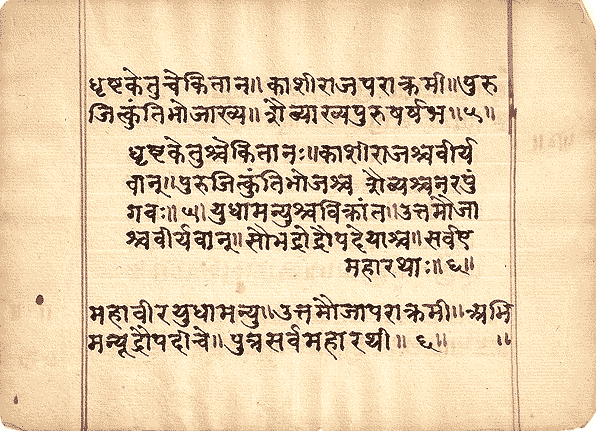 धृष्टकेतुचेकितान॥ काशीराजपराक्रमी॥ पुरु
जित्कुंतिभोजाख्य॥ शैब्याख्यपुरुषर्षभ॥५॥
धृष्टकेतुश्चेकितानः॥काशीराजश्चवीर्य
वान्॥पुरुजित्कुंतिभोजश्च शैब्यश्चनरपुं
गवः॥५॥युधामन्युश्चविक्रांत॥उत्तमौजा
श्चवीर्यवान्॥सौभद्रोद्रौपदेयाश्च॥सर्वए
महारथाः॥६॥
महावीरयुधामन्यु॥उत्तमौजापराक्रमी॥अभि
मन्यूद्रौपदीचे॥ पुत्रसर्वमहारथी॥ ६॥ ॥